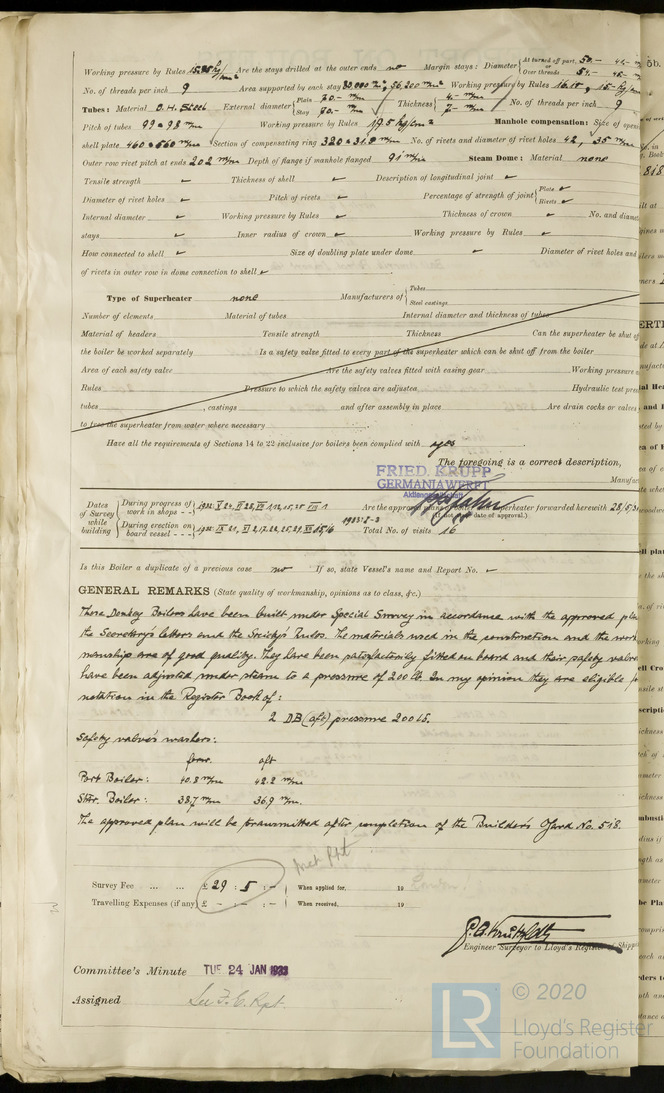 Working pressure by Rules 15.75 kg/cm² Are the stays drilled at the outer ends no Margin stays: Diameter { At turned off part, 50.- Over threads 51.-
No. of threads per inch 9 Area supported by each stay 56,200 m/m² Working pressure by Rules
Tubes: Material O.H. Steel External diameter { Plain 70.- m/m Stay 70.- m/m Thickness { 4.- m/m 7.- m/m No. of threads per inch 9
Pitch of tubes 99 x 98 m/m Working pressure by Rules 19.5 kg/cm² Manhole compensation: Size of open
shell plate 460 x 560 m/m Section of compensating ring No. of rivets and diameter of rivet holes 42, 35 m/m
Outer row rivet pitch at ends 202 m/m Depth of flange if manhole flanged 91 m/m Steam Dome: Material none
Tensile strength ✓ Thickness of shell ✓ Description of longitudinal joint ✓
Diameter of rivet holes ✓ Pitch of rivets ✓ Percentage of strength of joint { Plate ✓ Rivets ✓
Internal diameter ✓ Working pressure by Rules ✓ Thickness of crown ✓ No. and diame
stays ✓ Inner radius of crown ✓ Working pressure by Rules ✓
How connected to shell ✓ Size of doubling plate under dome ✓ Diameter of rivet holes and
of rivets in outer row in dome connection to shell ✓
Type of Superheater none Manufacturers of { Tubes Steel castings
Number of elements Material of tubes Internal diameter and thickness of tubes
Material of headers Tensile strength Thickness Can the superheater be shut of
the boiler be worked separately Is a safety valve fitted to every part of the superheater which can be shut off from the boiler
Area of each safety valve Are the safety valves fitted with easing gear Working pressure
Rules Pressure to which the safety valves are adjusted Hydraulic test pres
tubes , castings and after assembly in place Are drain cocks or valves
to free the superheater from water where necessary
Have all the requirements of Sections 14 to 22 inclusive for boilers been complied with yes
The foregoing is a correct description,
FRIED. KRUPP
GERMANIAWERFT
Aktiengesellschaft
Manufac
Dates of Survey while building { During progress of work in shops - - During erection on board vessel - - -
Are the approved plans of boiler and superheater forwarded herewith 28/5/3
(If not state date of approval.)
Total No. of visits 16
Is this Boiler a duplicate of a previous case no If so, state Vessel's name and Report No. ✓
GENERAL REMARKS (State quality of workmanship, opinions as to class, &c.)
These Donkey Boilers have been built under Special Survey in accordance with the approved plan
the Secretary's letters and the Society's Rules. The materials used in the construction and the work
manship are of good quality. They have been satisfactorily fitted on board and their safety valve
have been adjusted under steam to a pressure of 200 lb. In my opinion they are eligible fo
notation in the Register Book of:
2 DB (aft) pressure 200 lb.
Safety valve's washers:
forw. aft
Port Boiler: 40.8 m/m 42.2 m/m
Star. Boiler: 38.7 m/m 36.9 m/m.
The approved plan will be forwarded after completion of the Builder's Yard No. 518.
Survey Fee ... ... £ 29 : 5 : - When applied for, 19
Travelling Expenses (if any) £ - : - : - When received, 19
Engineer Surveyor to Lloyd's Register of Shipp
Committee's Minute TUE 24 JAN 1933
Assigned See F.E. Rpt.
LR © 2020
Lloyd's Register
Foundation